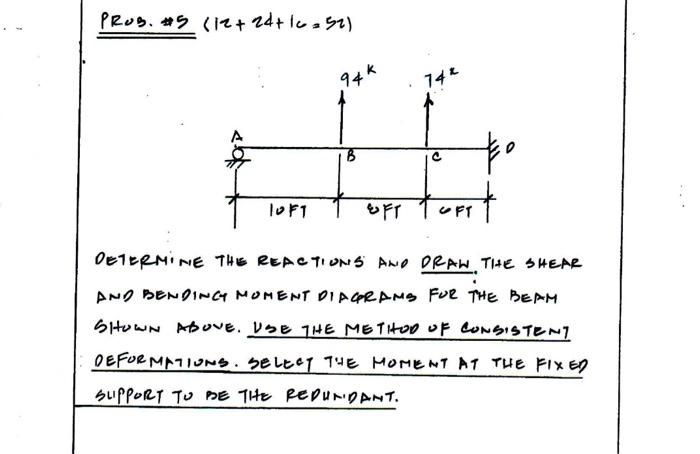 PROB. #5 (12 + 24 + 16 = 52)
94K 74K
A B C D
10 FT 8 FT 6 FT
DETERMINE THE REACTIONS AND DRAW THE SHEAR
AND BENDING MOMENT DIAGRAMS FOR THE BEAM
SHOWN ABOVE. USE THE METHOD OF CONSISTENT
DEFORMATIONS. SELECT THE MOMENT AT THE FIXED
SUPPORT TO BE THE REDUNDANT.